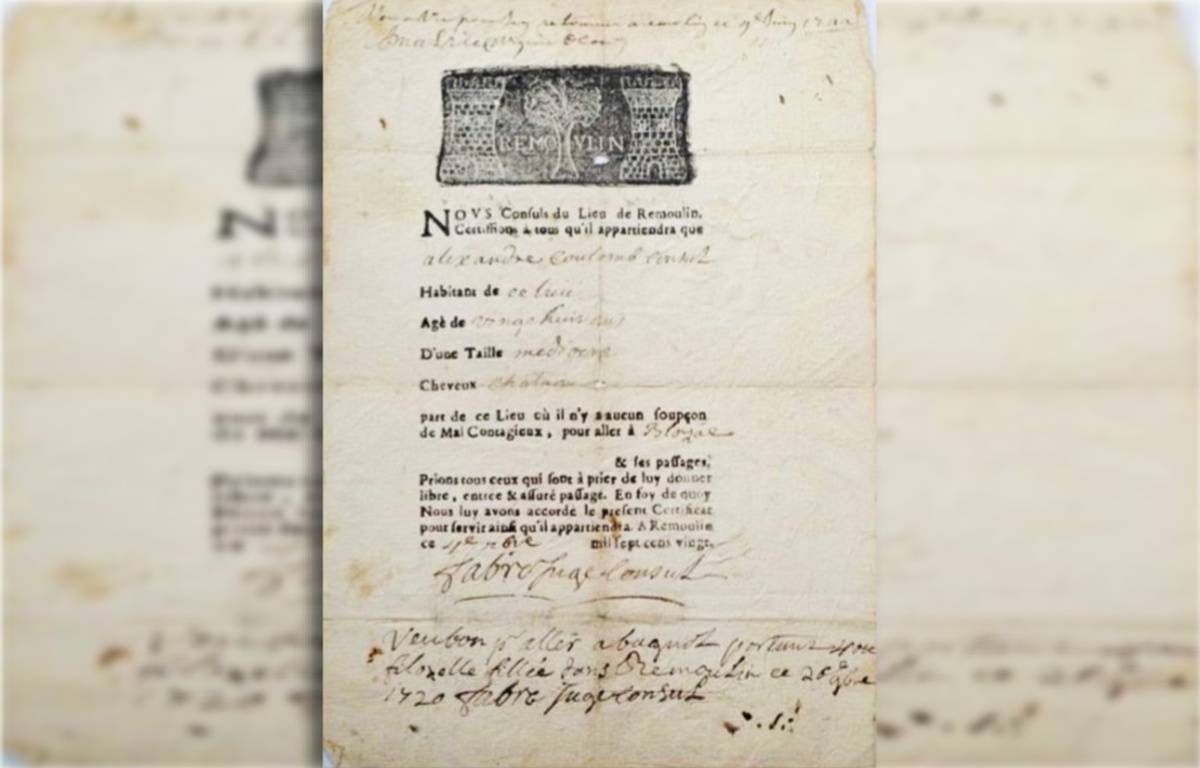 REMOVLIN
NOVS Conſuls du Lieu de Remoulin,
Certiffions à tous qu'il appartiendra que
alexandre coulomb consul
Habitant de ce lieu
Agè de vingt huit ans
D'une Taille mediocre
Cheveux chatain
part de ce Lieu où il n'y a aucun ſoupçon
de Mal Contagieux, pour aller à
& ſes paſſages,
Prions tous ceux qui ſont à prier de luy donner
libre, entrée & aſſuré paſſage. En foy de quoy
Nous luy avons accordé le preſent Certificat
pour ſervir ainſi qu'il appartiendra. A Remoulin
ce mil ſept cens vingt.
fabre Juge Consul
Veu bon pr aller a bagnol portant
filozelle dans Remoulin ce 26e
1720 fabre Juge Consul